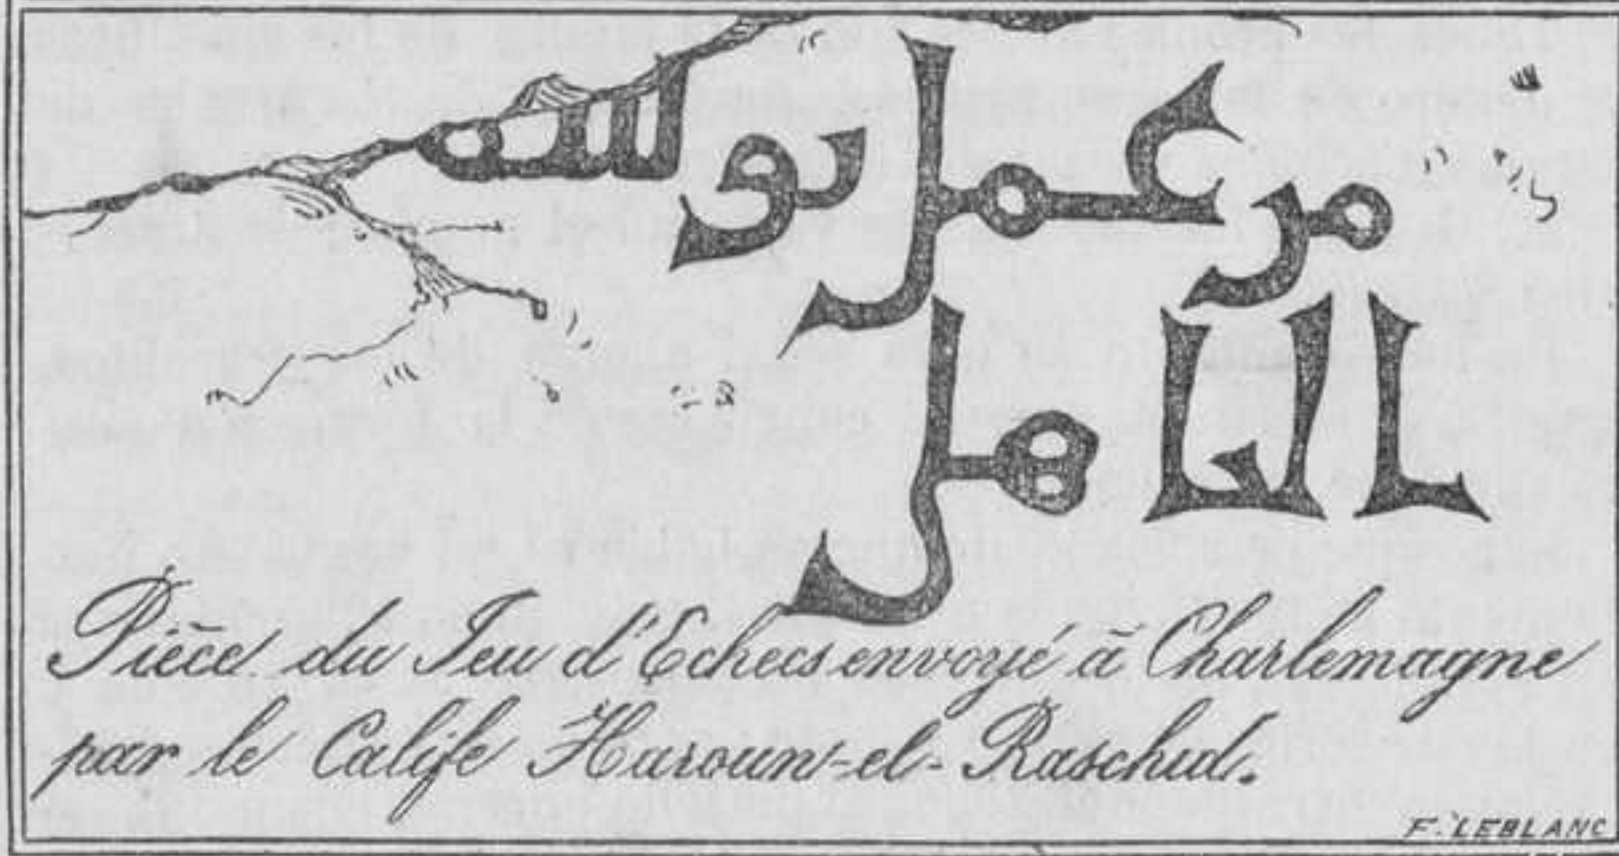 من عمل يوسف
الباهلي
Pièce du Jeu d'Echecs envoyé à Charlemagne
par le Calife Haroun-el-Raschid.
F. LEBLANC